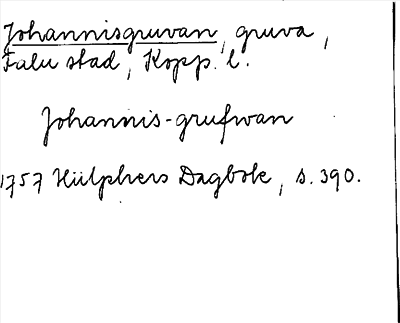 Johannisgruvan, gruva,
Falu stad, Kopp. l.
Johannis-grufwan
1757 Hülphers Dagbok, s. 390.